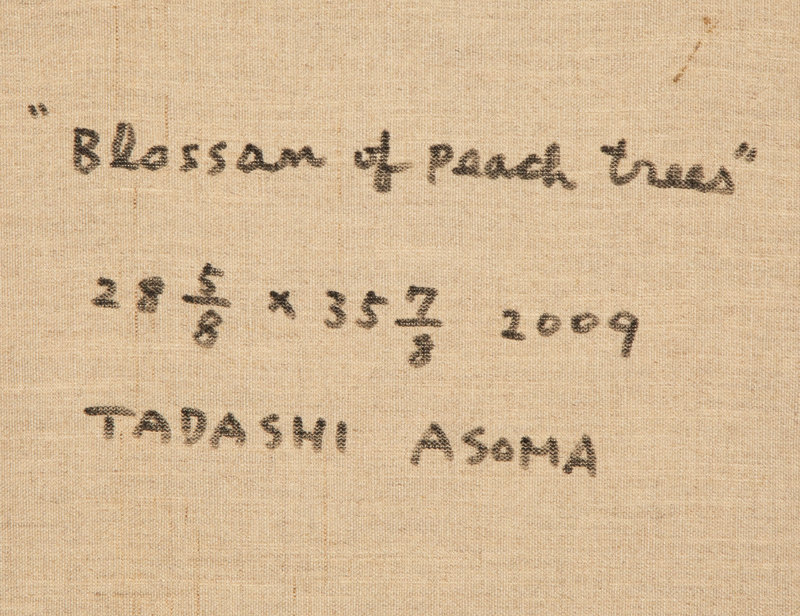 "Blossam of peach trees"
28 5/8 x 35 7/8 2009
TADASHI ASOMA